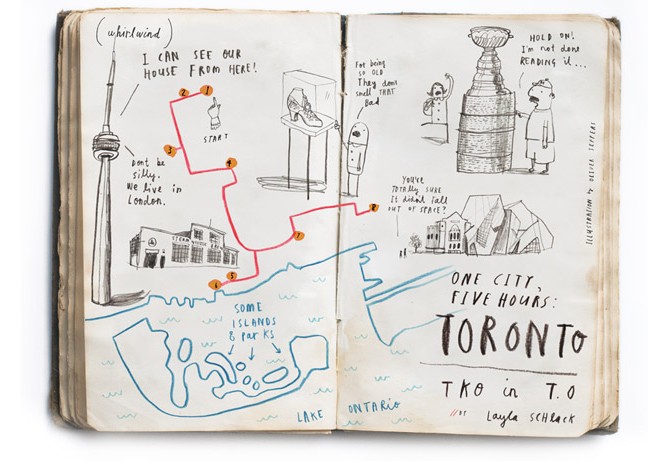 (whirlwind)
I CAN SEE OUR
HOUSE FROM HERE!
2
1
START
3
4
Dont be
silly.
We live in
London.
STEAM WHISTLE
5
6
7
8
SOME
ISLANDS
& PARKS
LAKE ONTARIO
For being
so OLD
They dont
smell THAT
Bad
HOLD ON!
I'm not done
READING it...
You're
TOTALLY SURE
It didnt fall
OUT OF SPACE?
ILLUSTRATION by OLIVER JEFFERS
ONE CITY,
FIVE HOURS:
TORONTO
TKO in T.O
Layla SCHLACK